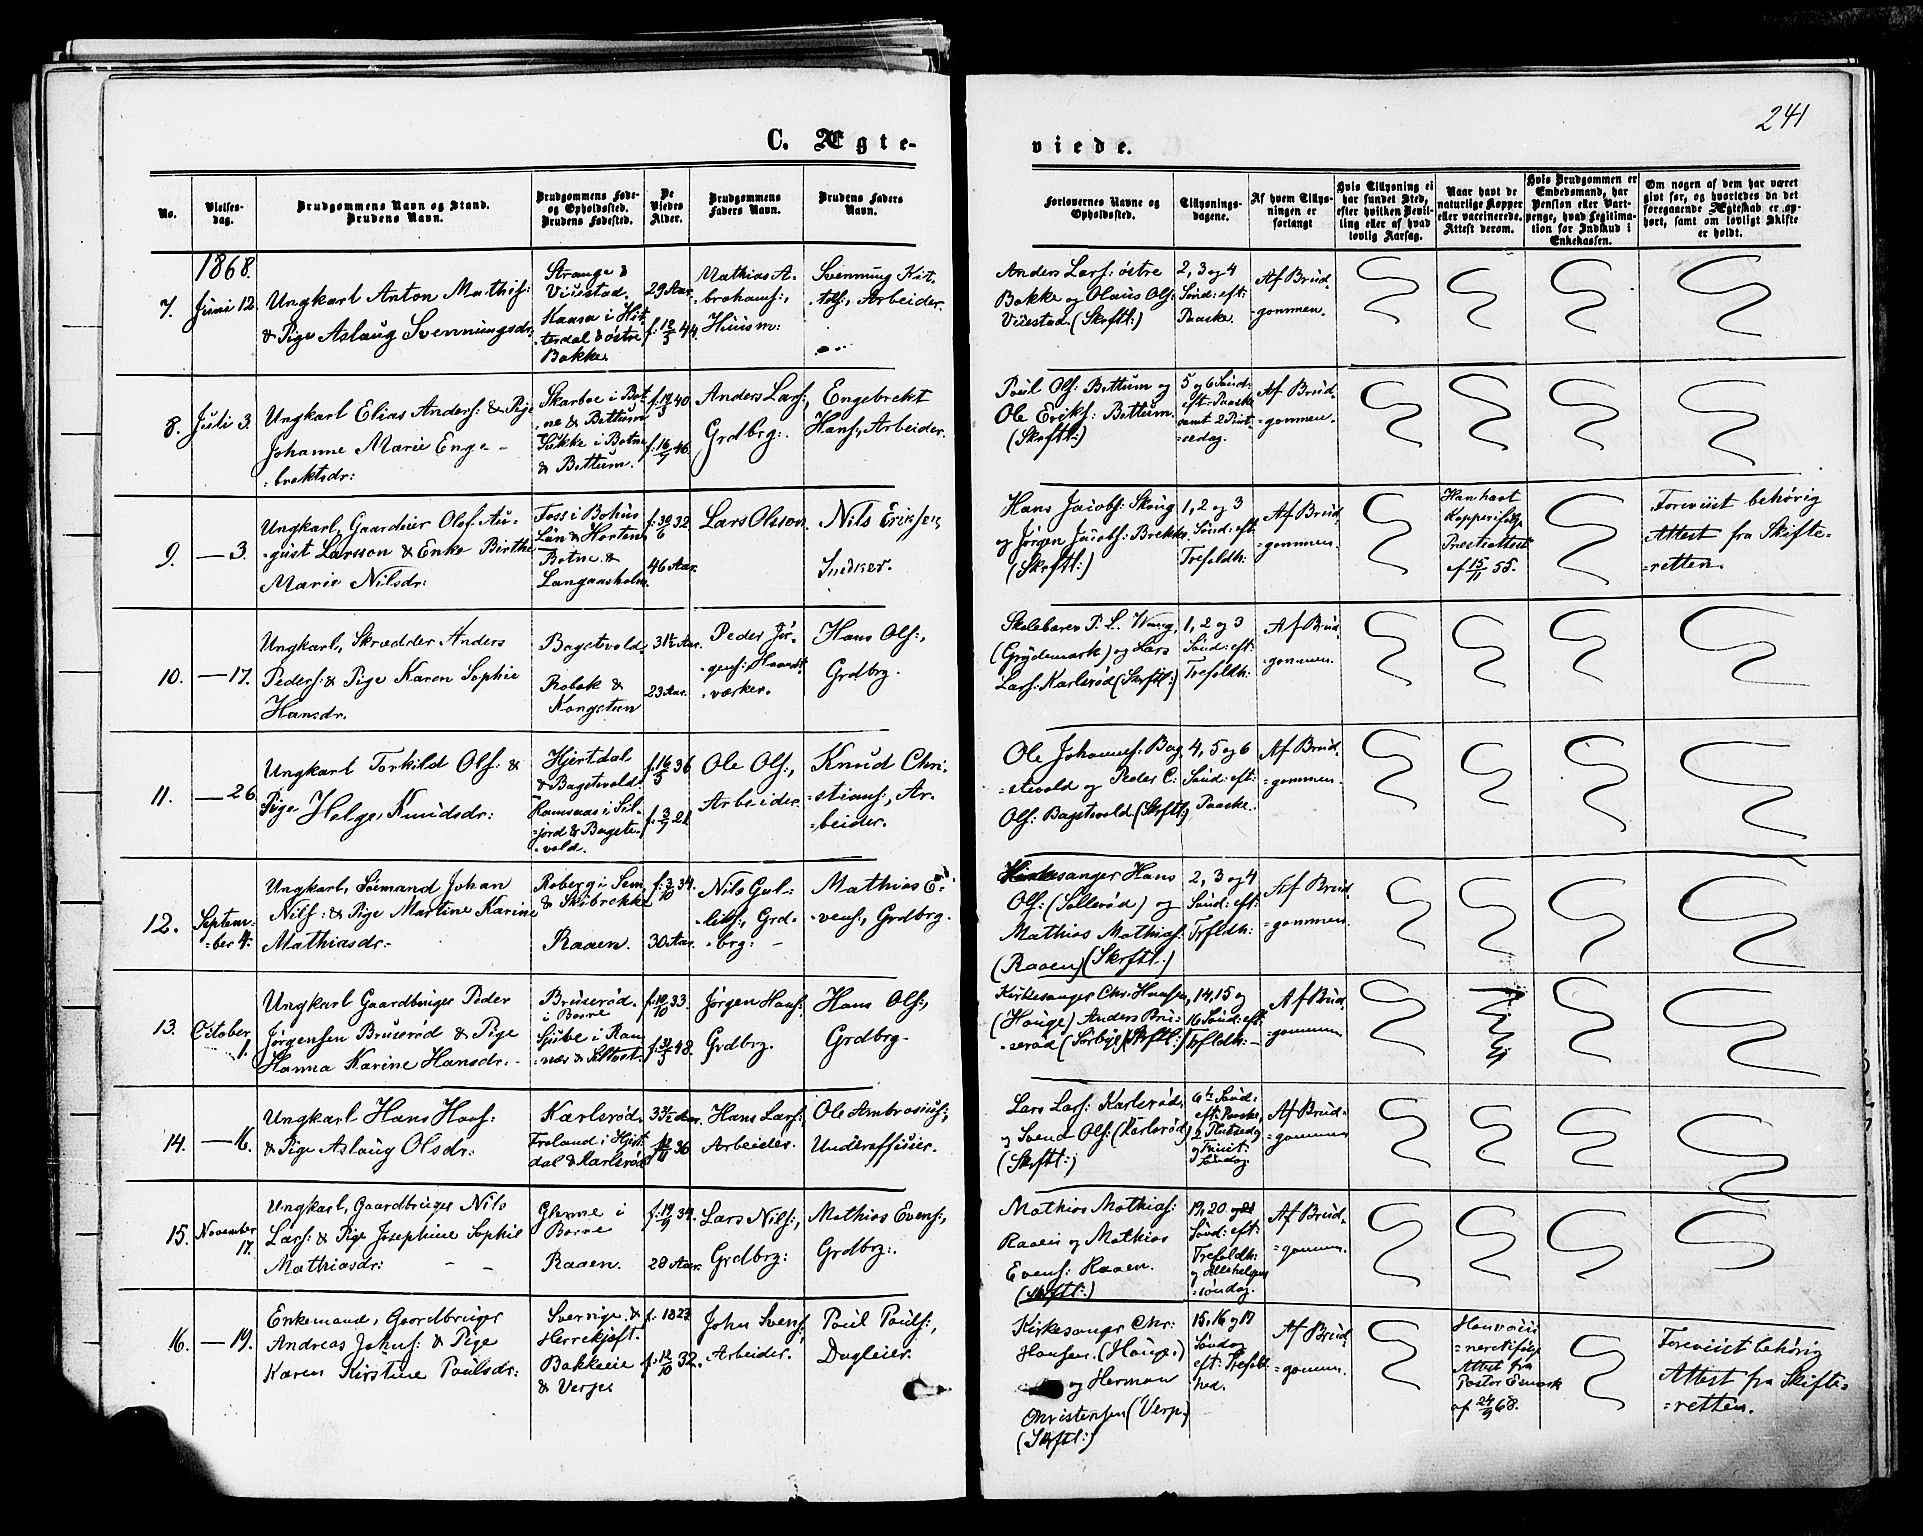 241
C. Ægte-
viede.
No.
Vielses-
dag.
Brudgommens Navn og Stand.
Brudens Navn.
Brudgommens Føde-
og Opholdssted.
Brudens Fødested.
De
Viedes
Alder.
Brudgommens
Faders Navn.
Brudens Faders
Navn.
Forlovernes Navne og
Opholdssted.
Tillysnings-
dagene.
Af hvem Tillys-
ningen er
forlangt
Hvis Tillysning ei
har fundet Sted,
efter hvilken Bevil-
ling eller af hvad
lovlig Aarsag.
Naar havt de
naturlige Kopper
eller vaccinerede.
Attest derom.
Hvis Brudgommen er
Embedsmand, har
Pension eller Vart-
penge, hvad Legitima-
tion for Indskud i
Enkekassen.
Om nogen af dem har været
gift før, og hvorledes da det
foregaaende Ægteskab er op-
hørt, samt om lovligt Skifte
er holdt.
1868.
7.
Juni 12.
Ungkarl Anton Mathis:
& Pige Aslaug Svenningsdr:
Strange &
Viuestad.
Haasa i Hit-
terdal & østre
Bakke.
29 Aar.
f: 12/3 44.
Mathias A-
brahams:,
Huusm:
Svenning Kit-
tils:, Arbeider.
Anders Lars: østre
Bakke og Olaus Ols:
Viuestad. (Skrftl:)
2, 3 og 4
Sønd: eft:
Paaske.
Af Brud
gommen.
8.
Juli 3.
Ungkarl Elias Anders: & Pige
Johanne Marie Enge-
=brektsdr:
Skarboe i Bot
ne & Bettum
Søkke i Botne
& Bettum.
f: 17/3 40
f: 16/9 46.
Anders Lars:,
Grdbrg:.
Engebrekt
Hans:, Arbeider.
Poul Ols: Bettum og
Ole Eriks: Bettum.
(Skrftl:)
5 og 6 Sønd:
eft: Paaske
samt 2 Pint-
=sedag.
Af Brud-
=gommen.
9.
— 3.
Ungkarl, Gaardeier Olof Au-
=gust Larsson & Enke Birthe
Marie Nilsdr:
Foss i Bohus
Län & Horten
Botne &
Langaasholm.
f: 30/6 32.
46 Aar.
Lars Olsson.
Nils Eriksen,
Inderst.
Hans Jacobs: Skoug
og Jørgen Jacobs: Brekke.
(Skrftl:)
1, 2 og 3
Sønd: eft
Trefoldh:
Af Brud-
=gommen.
Han havt
Kopper ifølge
Præsteattest
af 15/11 55.
Foreviist behørig
Attest fra Skifte=
=retten.
10.
— 17.
Ungkarl, Skrædder Anders
Peders: & Pige Karen Sophie
Hansdr.
Bagstvold.
Robak &
Kongsteen
31½ Aar.
23 Aar.
Peder Jør-
=gens: Haandt
værker.
Hans Ols:,
Grdbrg.
Skolelærer P. L. Wang,
(Grydemark) og Lars
Lars: Karlsrød (Skrftl:)
1, 2 og 3
Sønd: eft:
Trefoldh:
Af Brud-
=gommen.
11.
— 26.
Ungkarl Torkild Ols: &
Pige Helge Knudsdr:
Hjertdal
& Bagstvold.
Ramsaas i Sil-
=jord & Bagste-
vold.
f: 16/5 36
f: 3/9 21
Ole Ols:,
Arbeider.
Knud Chri-
=stians:, Ar-
=beider.
Ole Johannes: Bag
=stvold og Peder C:
Ols: Bagstvold. (Skrftl:)
4, 5 og 6
Sønd: eft:
Paaske.
Af Brud-
=gommen.
12.
Septem-
=ber 4.
Ungkarl, Sømand Johan
Nils: & Pige Martine Karine
Mathiasdr:
Roberg i Sem
& Skibrekke
Raaen.
f: 3/10 34.
30 Aar.
Nils Gul-
=liks:, Grd-
=brg:
Mathias E-
=vens:, Grdbrg.
Kirkesanger Hans
Ols: (Sollerød) og
Mathias Mathias:
(Raaen) (Skrftl:)
2, 3 og 4
Sønd: eft:
Trfldh:
Af Brud
=gommen
13.
October
1.
Ungkarl Gaardbruger Peder
Jørgensen Bruserød & Pige
Hanna Karine Hansdr.
Bruserød.
i Borre
f: 10/10 33.
f: 31/3 48.
Jørgen Hans:
Grdbrg.
Hans Ols:,
Grdbrg.
Kirkesanger Chr. Hansen,
(Houge) Anders Bru=
=serød (Sørbye) (Skrftl:)
14, 15 og
16 Sønd: eft
Trfoldh:
Af Brud
=gommen
14.
— 16.
Ungkarl Hans Hans:
& Pige Aslaug Olsdr:
Karlsrød.
Froland i Hjert
dal & Karlsrød
33½ Aar.
f: 12/11 36
Hans Lars:
Arbeider.
Ole Ambrosius:,
Underofficier.
Lars Lars: Karlsrød,
og Svend Ols: (Karlsrød)
(Skrftl:)
6te Sønd:
eft: Paaske
2 Pintsedag
og Trinit:
Søndag.
Af Brud-
=gommen
15.
November
17.
Ungkarl, Gaardbruger Nils
Lars: & Pige Josephine Sophie
Mathiasdr:
Glenne i
Borre
Raaen.
f: 19/9 34.
28 Aar.
Lars Nils:,
Grdbrg:
Mathias Evens:,
Grdbrg:.
Mathias Mathias:
Raaen og Mathias
Evens: Raaen.
(Skrftl:)
19, 20 og 21
Sønd: eft:
Trefoldh:
og Allehelgens
=søndag.
Af Brud-
=gommen.
16.
— 19.
Enkemand, Gaardbruger
Andreas Johns: & Pige
Karen Kirstine Poulsdr:
Sverrige &
Herrekjøft.
Bakkeeie
& Verpe
f. 1823
f: 12/10 32.
John Svens:
Arbeider.
Poul Pouls:,
Dagleier.
Kirkesanger Chr:
Hansen. (Houge.)
og Herman
Christensen (Verp.)
(Skrftl:)
15, 16 og 17
Søndag
eft: Trefold
hed.
Af Brud
=gommen.
Attest fra
Pastor
af 24/9 68.
Foreviist behørig
Attest fra Skifte=
=retten.